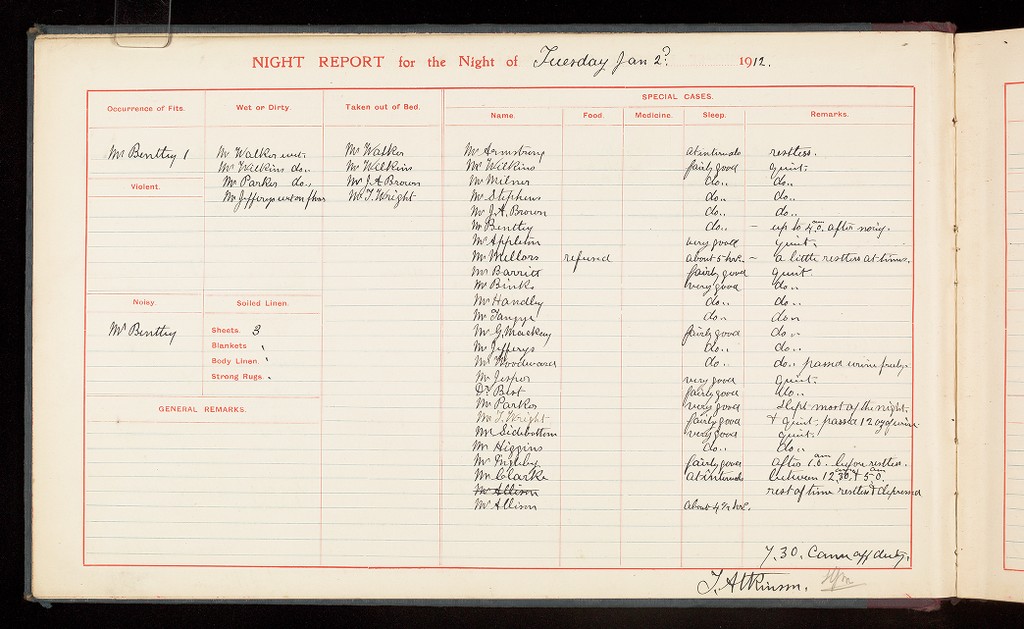 NIGHT REPORT for the Night of Tuesday Jan 2? 1912.
SPECIAL CASES.
Occurrence of Fits. Wet or Dirty. Taken out of Bed. Name. Food. Medicine. Sleep. Remarks.
Mr Benttey 1 Mr Walker wet. Mr Walker Mr Armstrong at intervals restless.
Mr Wilkins do.. Mr Wilkins Mr Wilkins fairly good quiet.
Violent. Mr Parker do.. Mr J.A Brown Mr Milner do.. do..
Mr Jefferys wet on floor Mr T. Wright Mr Stephens do.. do..
Mr J.A. Brown do.. do..
Mr Benttey do.. – up to 4.0. am after noisy.
Mr Appleton very good quiet.
Mr Mellors refused about 5 hrs. – a little restless at times.
Mr Barritt fairly good quiet.
Mr Binks very good do..
Noisy. Soiled Linen. Mr Handley do.. do..
Mr Tangye do.. do..
Mr Benttey Sheets. 3 Mr G. Mackey fairly good do..
Blankets Mr Jefferys do.. do..
Body Linen. Mr Woodward do.. do.. passed urine freely.
Strong Rugs. Mr Jesper very good quiet.
Dr Best fairly good do..
GENERAL REMARKS. Mr Parker very good slept most of the night.
Mr T. Wright fairly good & quiet – passed 12 oz of urine
Mr Sidebottom very good quiet.
Mr Higgins do.. do..
Mr Ingleby fairly good after 1.0. am before restless.
Mr Clarke at intervals between 12.30 & 5.0. am
Mr Allison rest of time restless & depressed
Mr Allison about 4½ hrs.
7.30. Came off duty.
T. Atkinson.